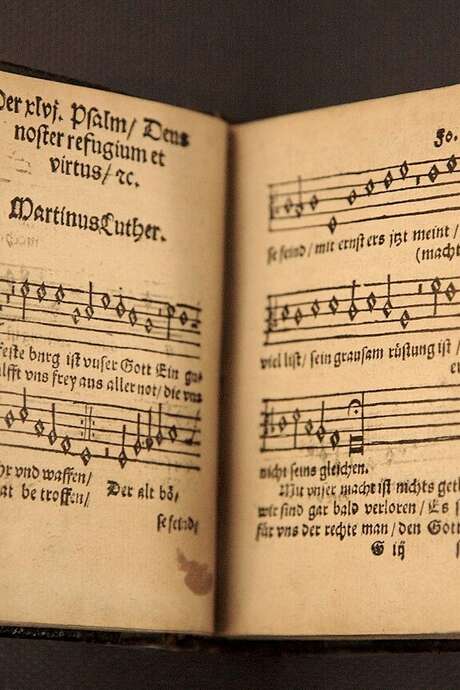 Der xlvj. Psalm/ Deus
noster refugium et
virtus/ ꝛc.
Martinus Luther.
feste burg ist vnser Gott Ein gu-
hilfft vns frey aus aller not/ die vns
wehr vnd waffen/
hat betroffen/ Der alt bö-
se feind/
30.
se feind/ mit ernst ers jtzt meint/
(macht
viel list/ sein grausam rüstung ist/
nicht seins gleichen.
Mit vnser macht ist nichts geth
wir sind gar bald verloren/ Es s
für vns der rechte man/ den Gott
G iij